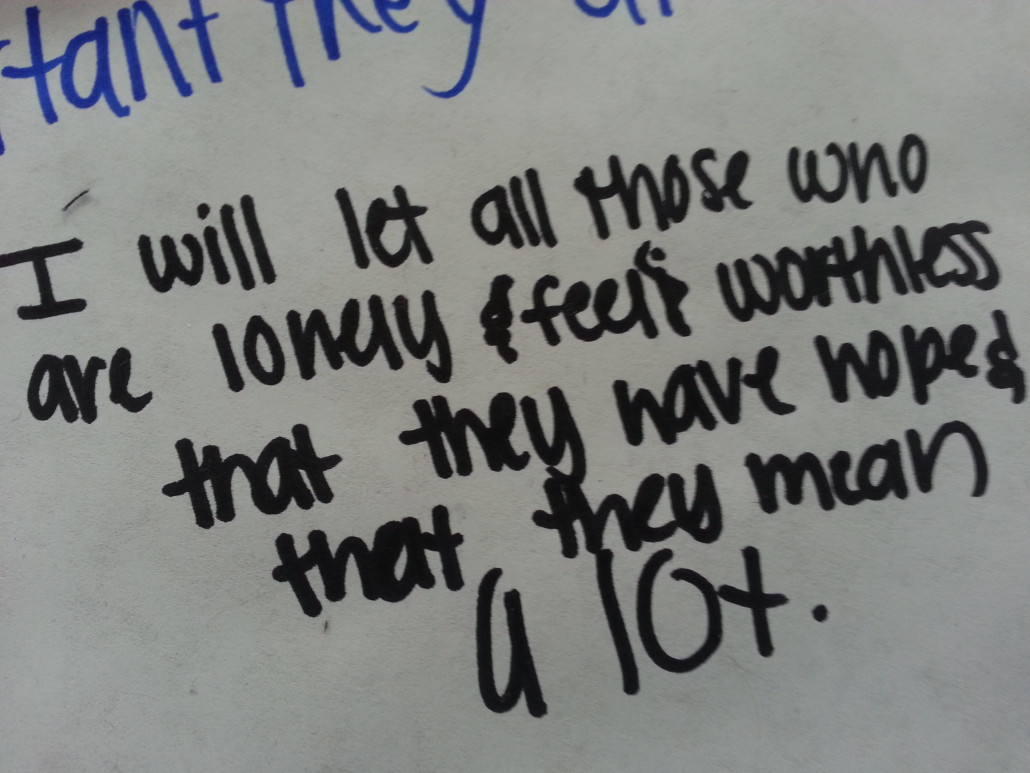 tant they
I will let all those who
are lonely & feel worthless
that they have hope &
that they mean
a lot.